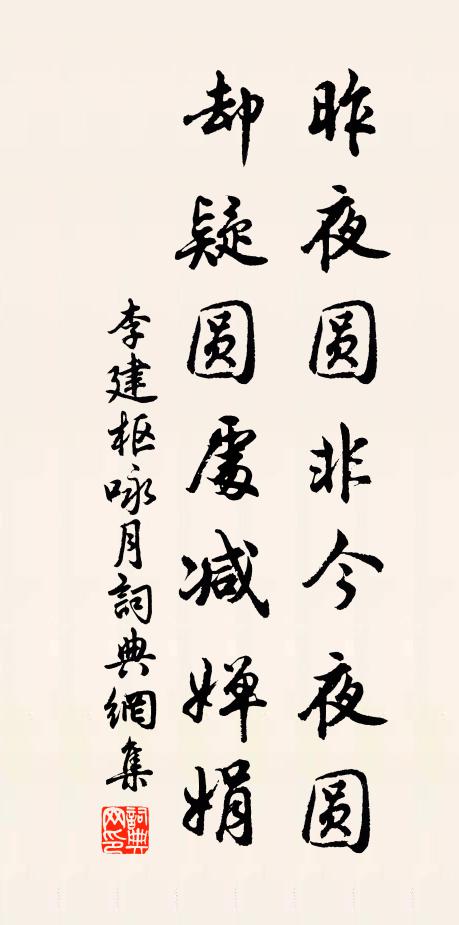 昨夜圆非今夜圆
却疑圆處减婵娟
李建枢咏月詞典網集
詞典网印